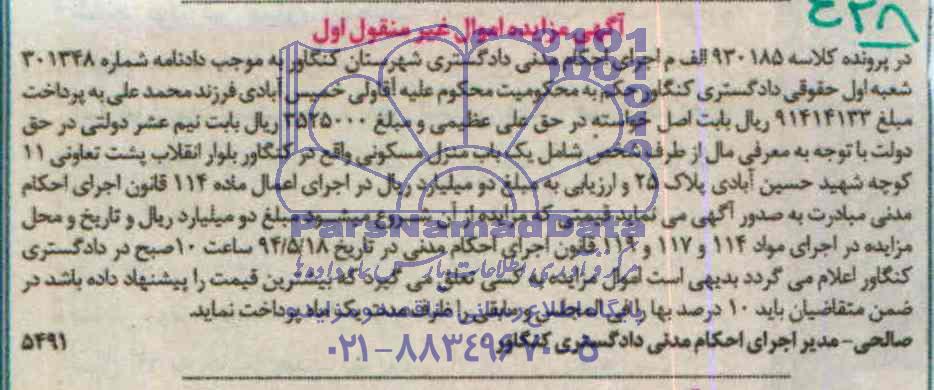 ۴۳۸
آگهی مزایده اموال غیر منقول اول
در پرونده کلاسه ۹۳۰۱۸۵ الف م اجرای احکام مدنی دادگستری شهرستان کنگاور به موجب دادنامه شماره ۳۰۱۳۴۸
شعبه اول حقوقی دادگستری کنگاور حکم به محکومیت محکوم علیه آقاولی خمیس آبادی فرزند محمد علی به پرداخت
مبلغ ۹۱۴۱۴۱۳۳ ریال بابت اصل خواسته در حق علی عظیمی و مبلغ ۲۵۲۵۰۰۰ ریال بابت نیم عشر دولتی در حق
دولت با توجه به معرفی مال از طرف شخص شامل یک باب منزل مسکونی واقع در کنگاور بلوار انقلاب پشت تعاونی ۱۱
کوچه شهید حسین آبادی پلاک ۲۵ و ارزیابی به مبلغ دو میلیارد ریال در اجرای اعمال ماده ۱۱۴ قانون اجرای احکام
مدنی مبادرت به صدور آگهی می نماید قیمتی که مزایده از آن شروع میشود مبلغ دو میلیارد ریال و تاریخ و محل
مزایده در اجرای مواد ۱۱۴ و ۱۱۷ و ۱۱۹ قانون اجرای احکام مدنی در تاریخ ۹۴/۵/۱۸ ساعت ۱۰ صبح در دادگستری
کنگاور اعلام می گردد بدیهی است اموال مزایده به کسی تعلق می گیرد که بیشترین قیمت را پیشنهاد داده باشد در
ضمن متقاضیان باید ۱۰ درصد بها را فی المجلس و مابقی را ظرف مدت یک ماه پرداخت نماید.
صالحی - مدیر اجرای احکام مدنی دادگستری کنگاور ۵۴۹۱
ParsNamadData
مرکز فرآوری اطلاعات پارس نماد داده ها
۰۲۱-۸۸۳۴۹۶۷۰-۵